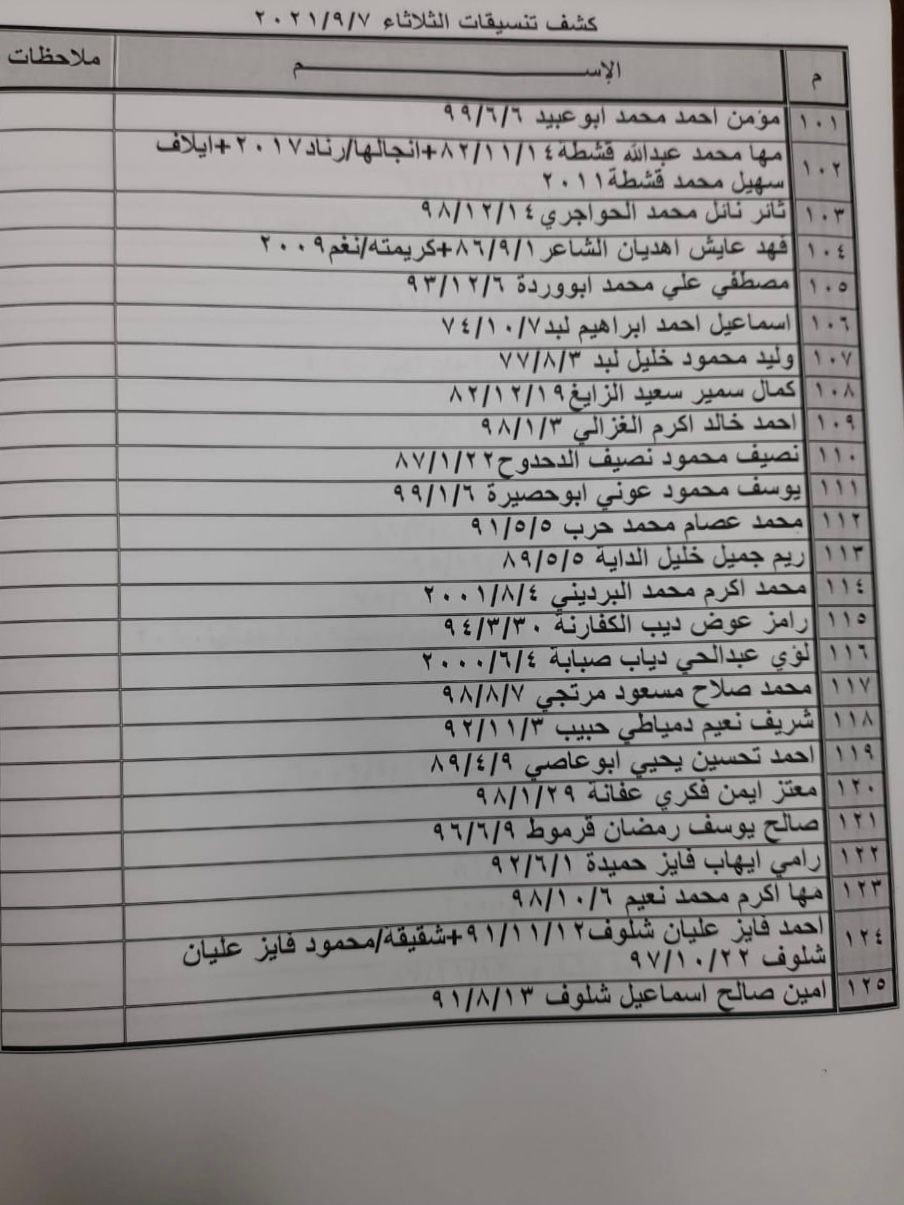 كشف تنسيقات الثلاثاء ٢٠٢١/٩/٧
م الإســـــــــــــم ملاحظات
١٠١ مؤمن احمد محمد ابوعبيد ٩٩/٦/٦
١٠٢ مها محمد عبدالله قشطة٨٢/١١/١٤+انجالها/رناد٢٠١٧+ايلاف
سهيل محمد قشطة٢٠١١
١٠٣ ثائر نائل محمد الحواجري ٩٨/١٢/١٤
١٠٤ فهد عايش اهديان الشاعر٨٦/٩/١+كريمته/نغم٢٠٠٩
١٠٥ مصطفي علي محمد ابووردة ٩٣/١٢/٦
١٠٦ اسماعيل احمد ابراهيم لبد٧٤/١٠/٧
١٠٧ وليد محمود خليل لبد ٧٧/٨/٣
١٠٨ كمال سمير سعيد الزايغ٨٢/١٢/١٩
١٠٩ احمد خالد اكرم الغزالي ٩٨/١/٣
١١٠ نصيف محمود نصيف الدحدوح٨٧/١/٢٢
١١١ يوسف محمود عوني ابوحصيرة ٩٩/١/٦
١١٢ محمد عصام محمد حرب ٩١/٥/٥
١١٣ ريم جميل خليل الداية ٨٩/٥/٥
١١٤ محمد اكرم محمد البرديني ٢٠٠١/٨/٤
١١٥ رامز عوض ديب الكفارنة ٩٤/٣/٣٠
١١٦ لؤي عبدالحي دياب صبابة ٢٠٠٠/٦/٤
١١٧ محمد صلاح مسعود مرتجي ٩٨/٨/٧
١١٨ شريف نعيم دمياطي حبيب ٩٢/١١/٣
١١٩ احمد تحسين يحيي ابوعاصي ٨٩/٤/٩
١٢٠ معتز ايمن فكري عفانة ٩٨/١/٢٩
١٢١ صالح يوسف رمضان قرموط ٩٦/٦/٩
١٢٢ رامي ايهاب فايز حميدة ٩٢/٦/١
١٢٣ مها اكرم محمد نعيم ٩٨/١٠/٦
١٢٤ احمد فايز عليان شلوف٩١/١١/١٢+شقيقة/محمود فايز عليان
شلوف ٩٧/١٠/٢٢
١٢٥ امين صالح اسماعيل شلوف ٩١/٨/١٣